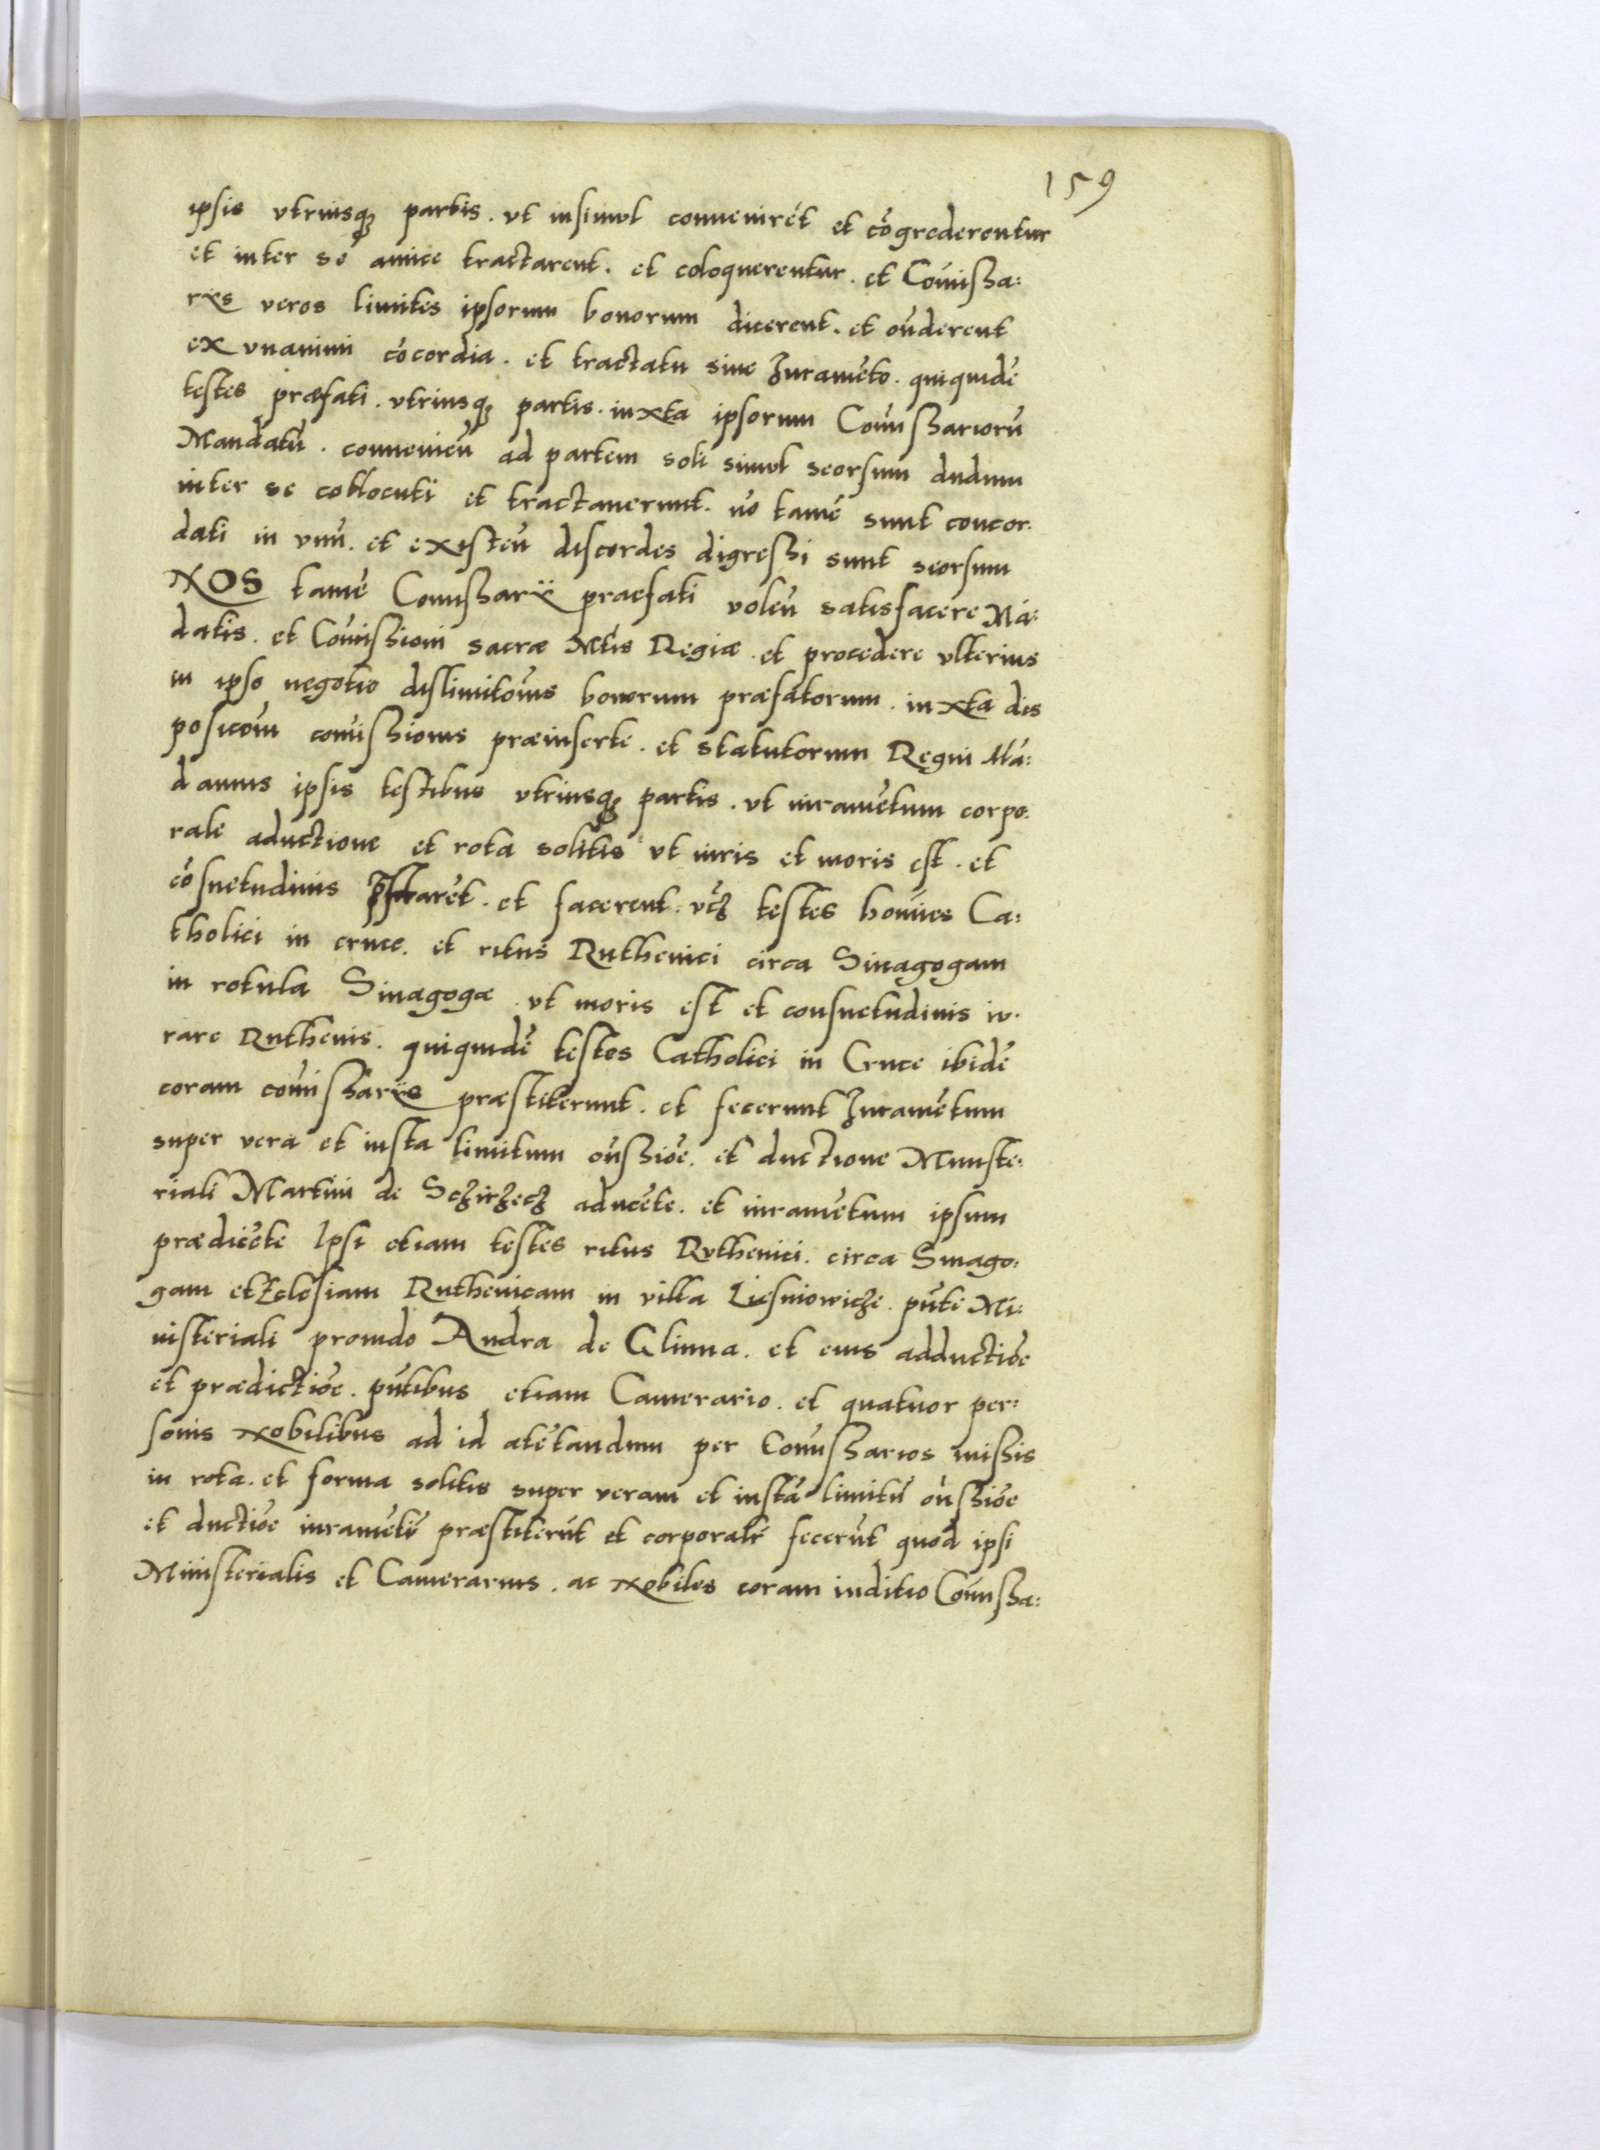 159
ipsis vtriusq3 partis. vt insimul conuenirēt et cōgrederentur
et inter se amice tractarent. et coloquerentur. et Com̄issa:
rijs veros limites ipsorum bonorum dicerent. et on̄derent
ex vnanimi cōcordia. et tractatu sine Iuramēto. quiquidē
testes præfati. vtriusq3 partis. iuxta ipsorum Com̄issariorū
Mandatū. conuenien̄ ad partem soli simul seorsum dudum
inter se collocuti et tractauerunt. nō tamē sunt concor.
dati in vnū. et existen̄ discordes digressi sunt seorsum
NOS tamē Com̄issarij præfati volen̄ satisfacere Mā:
datis. et Com̄issioni sacræ Mtis Regiæ. et procedere vlterius
in ipso negotio dislimitōnis bonorum præfatorum. iuxta dis
positōm com̄issionis præinserte. et statutorum Regni Mā:
damus ipsis testibus vtriusq3 partis. vt iuramentum corpo.
rale aductione et rota solitis vt iuris et moris est. et
cōsuetudinis p̄starēt. et facerent. vc3 testes homīes Ca:
tholici in cruce. et ritus Ruthenici circa Sinagogam
in rotula Sinagogæ. vt moris est et consuetudinis iu.
rare Ruthenis. quiquidē testes Catholici in Cruce ibidē
coram com̄issarijs præstiterunt. et fecerunt Iuramētum
super vera et iusta limitum on̄ssiōe. et ductione Ministe:
riali Martini de Sczirzecz aducēte. et iuramētum ipsum
prædicēte Ipsi etiam testes ritus Ruthenici. circa Sinago:
gam et Eclesiam Ruthenicam in villa Liesniowicze. pn̄te Mi:
nisteriali prouido Andra de Glinna. et eius adductiōe
et prædictiōe. pn̄tibus etiam Camerario. et quatuor per:
sonis Nobilibus ad id atētandum per Com̄issarios missis
in rota. et forma solitis super veram et iustā limitū on̄ssiōe
et ductiōe iuramētū præstiterūt et corporale fecerūt quod ipsi
Ministerialis et Camerarius. ac Nobiles coram iuditio Com̄issa: